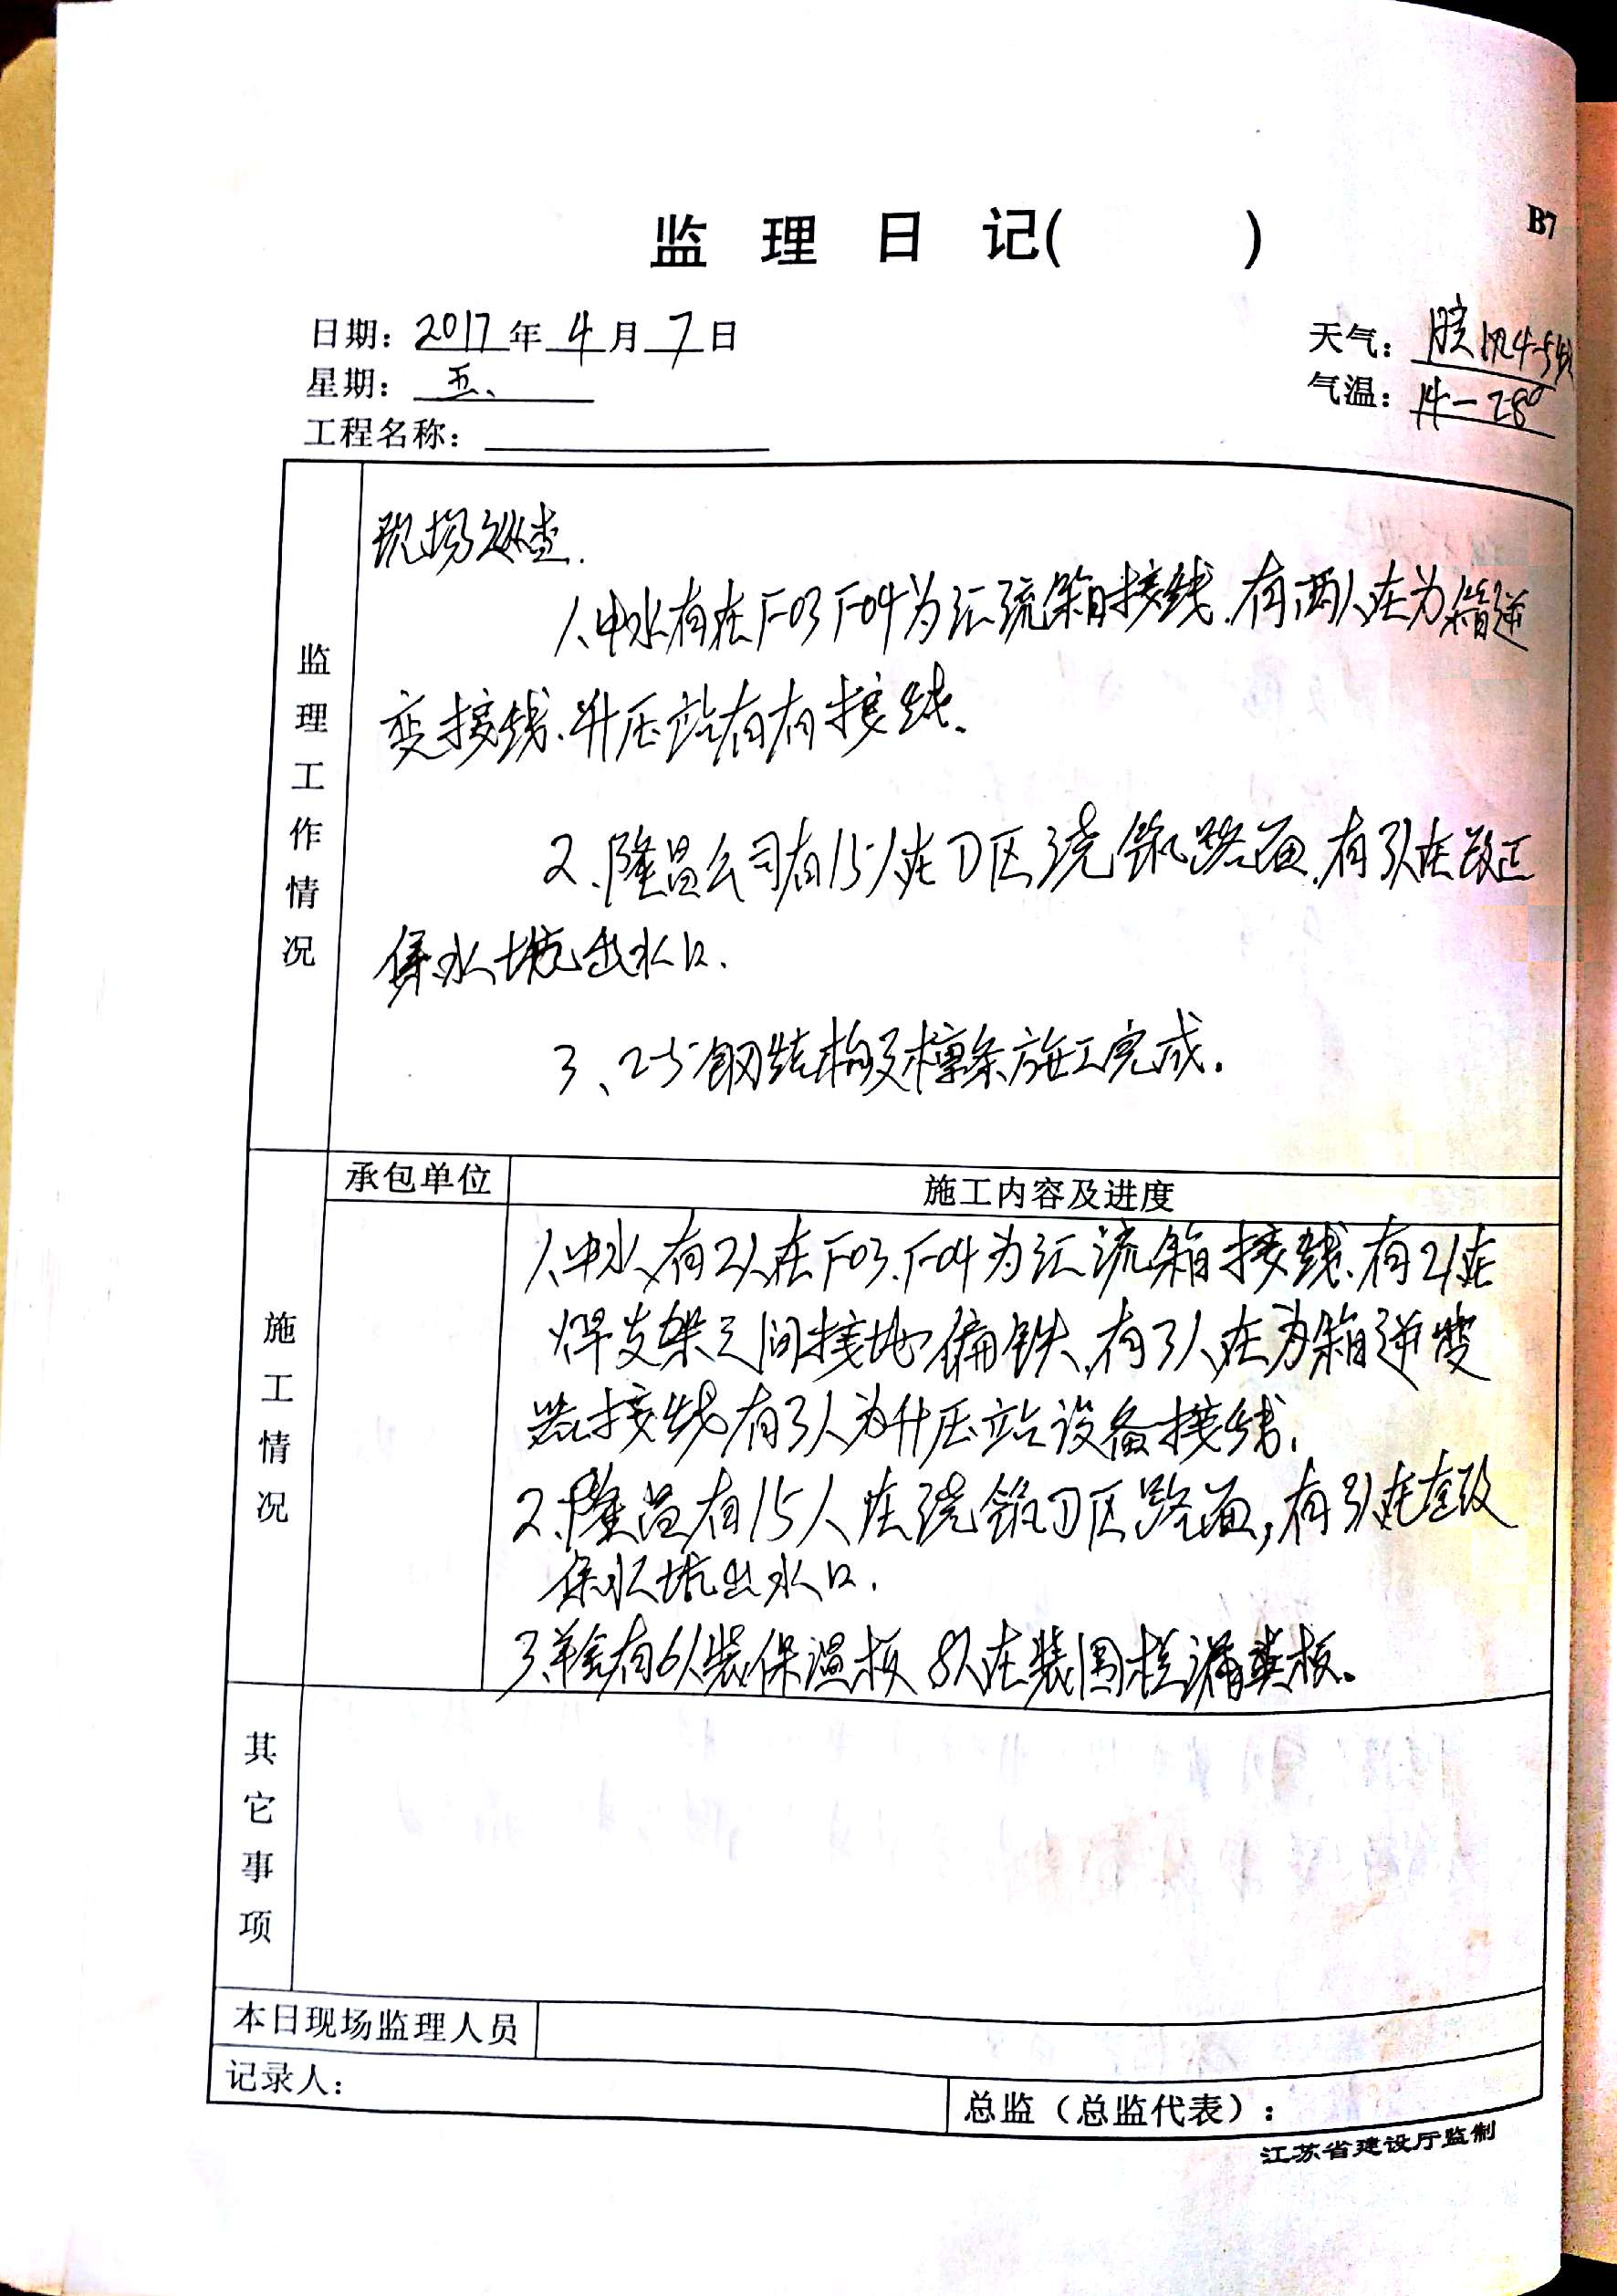 监 理 日 记( )
B7
日期：2017年4月7日
天气：晴 风4-5级
星期：五、
气温：14-28°
工程名称：
监理工作情况
现场巡查.
1、中水有在F03 F04为汇流箱接线.有两人在为箱逆
变接线、升压站有有接线。
2、隆昌公司有15人在D区浇筑路面.有3人在改正
集水坑出水口.
3、25#钢结构及檩条施工完成.
承包单位
施工内容及进度
施工情况
1、中水有2人在F03.F04为汇流箱接线.有2人在
焊支架之间接地偏铁、有3人在为箱逆变
器接线有3人为升压站设备接线.
2、隆昌有15人在浇筑D区路面,有3人在整改
集水坑出水口.
3、羊舍有6人装保温板 8人在装围栏漏粪板。
其它事项
本日现场监理人员
记录人：
总监（总监代表）：
江苏省建设厅监制